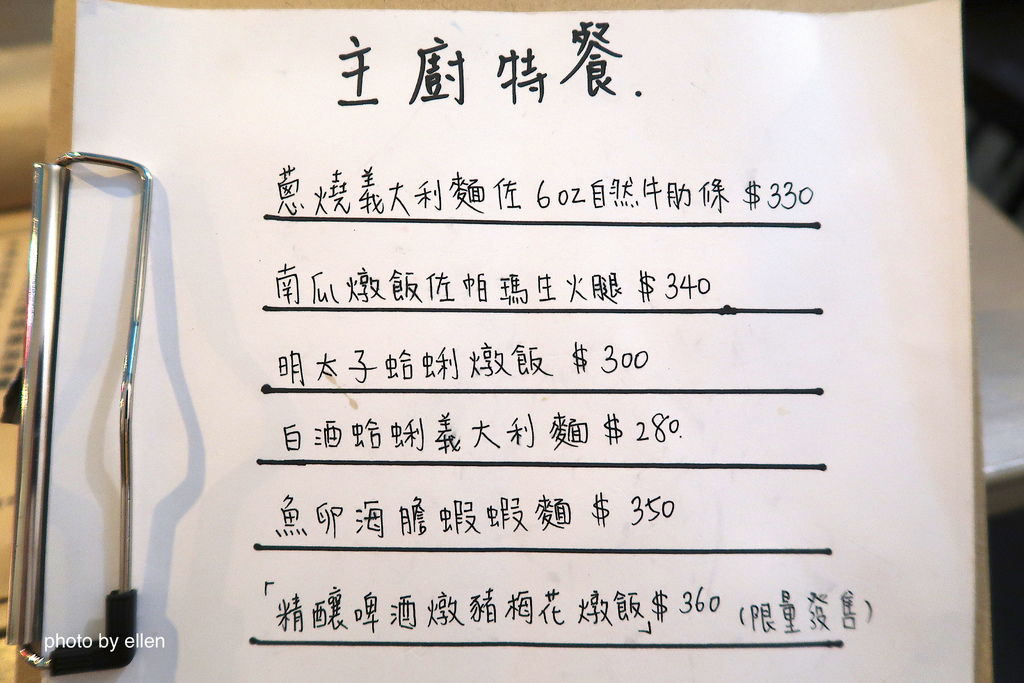 主廚特餐.
蔥燒義大利麵佐6oz自然牛肋條 $330
南瓜燉飯佐帕瑪生火腿 $340
明太子蛤蜊燉飯 $300
白酒蛤蜊義大利麵 $280.
魚卵海膽蝦蝦麵 $ 350
「精釀啤酒燉豬梅花燉飯」$360 (限量發售)
photo by ellen